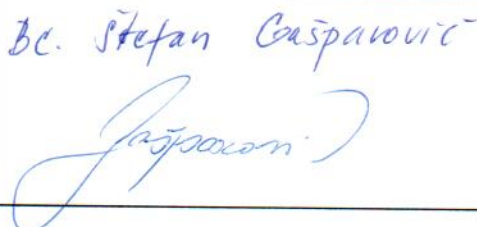 Bc. Štefan Gašparovič
Gašparovič